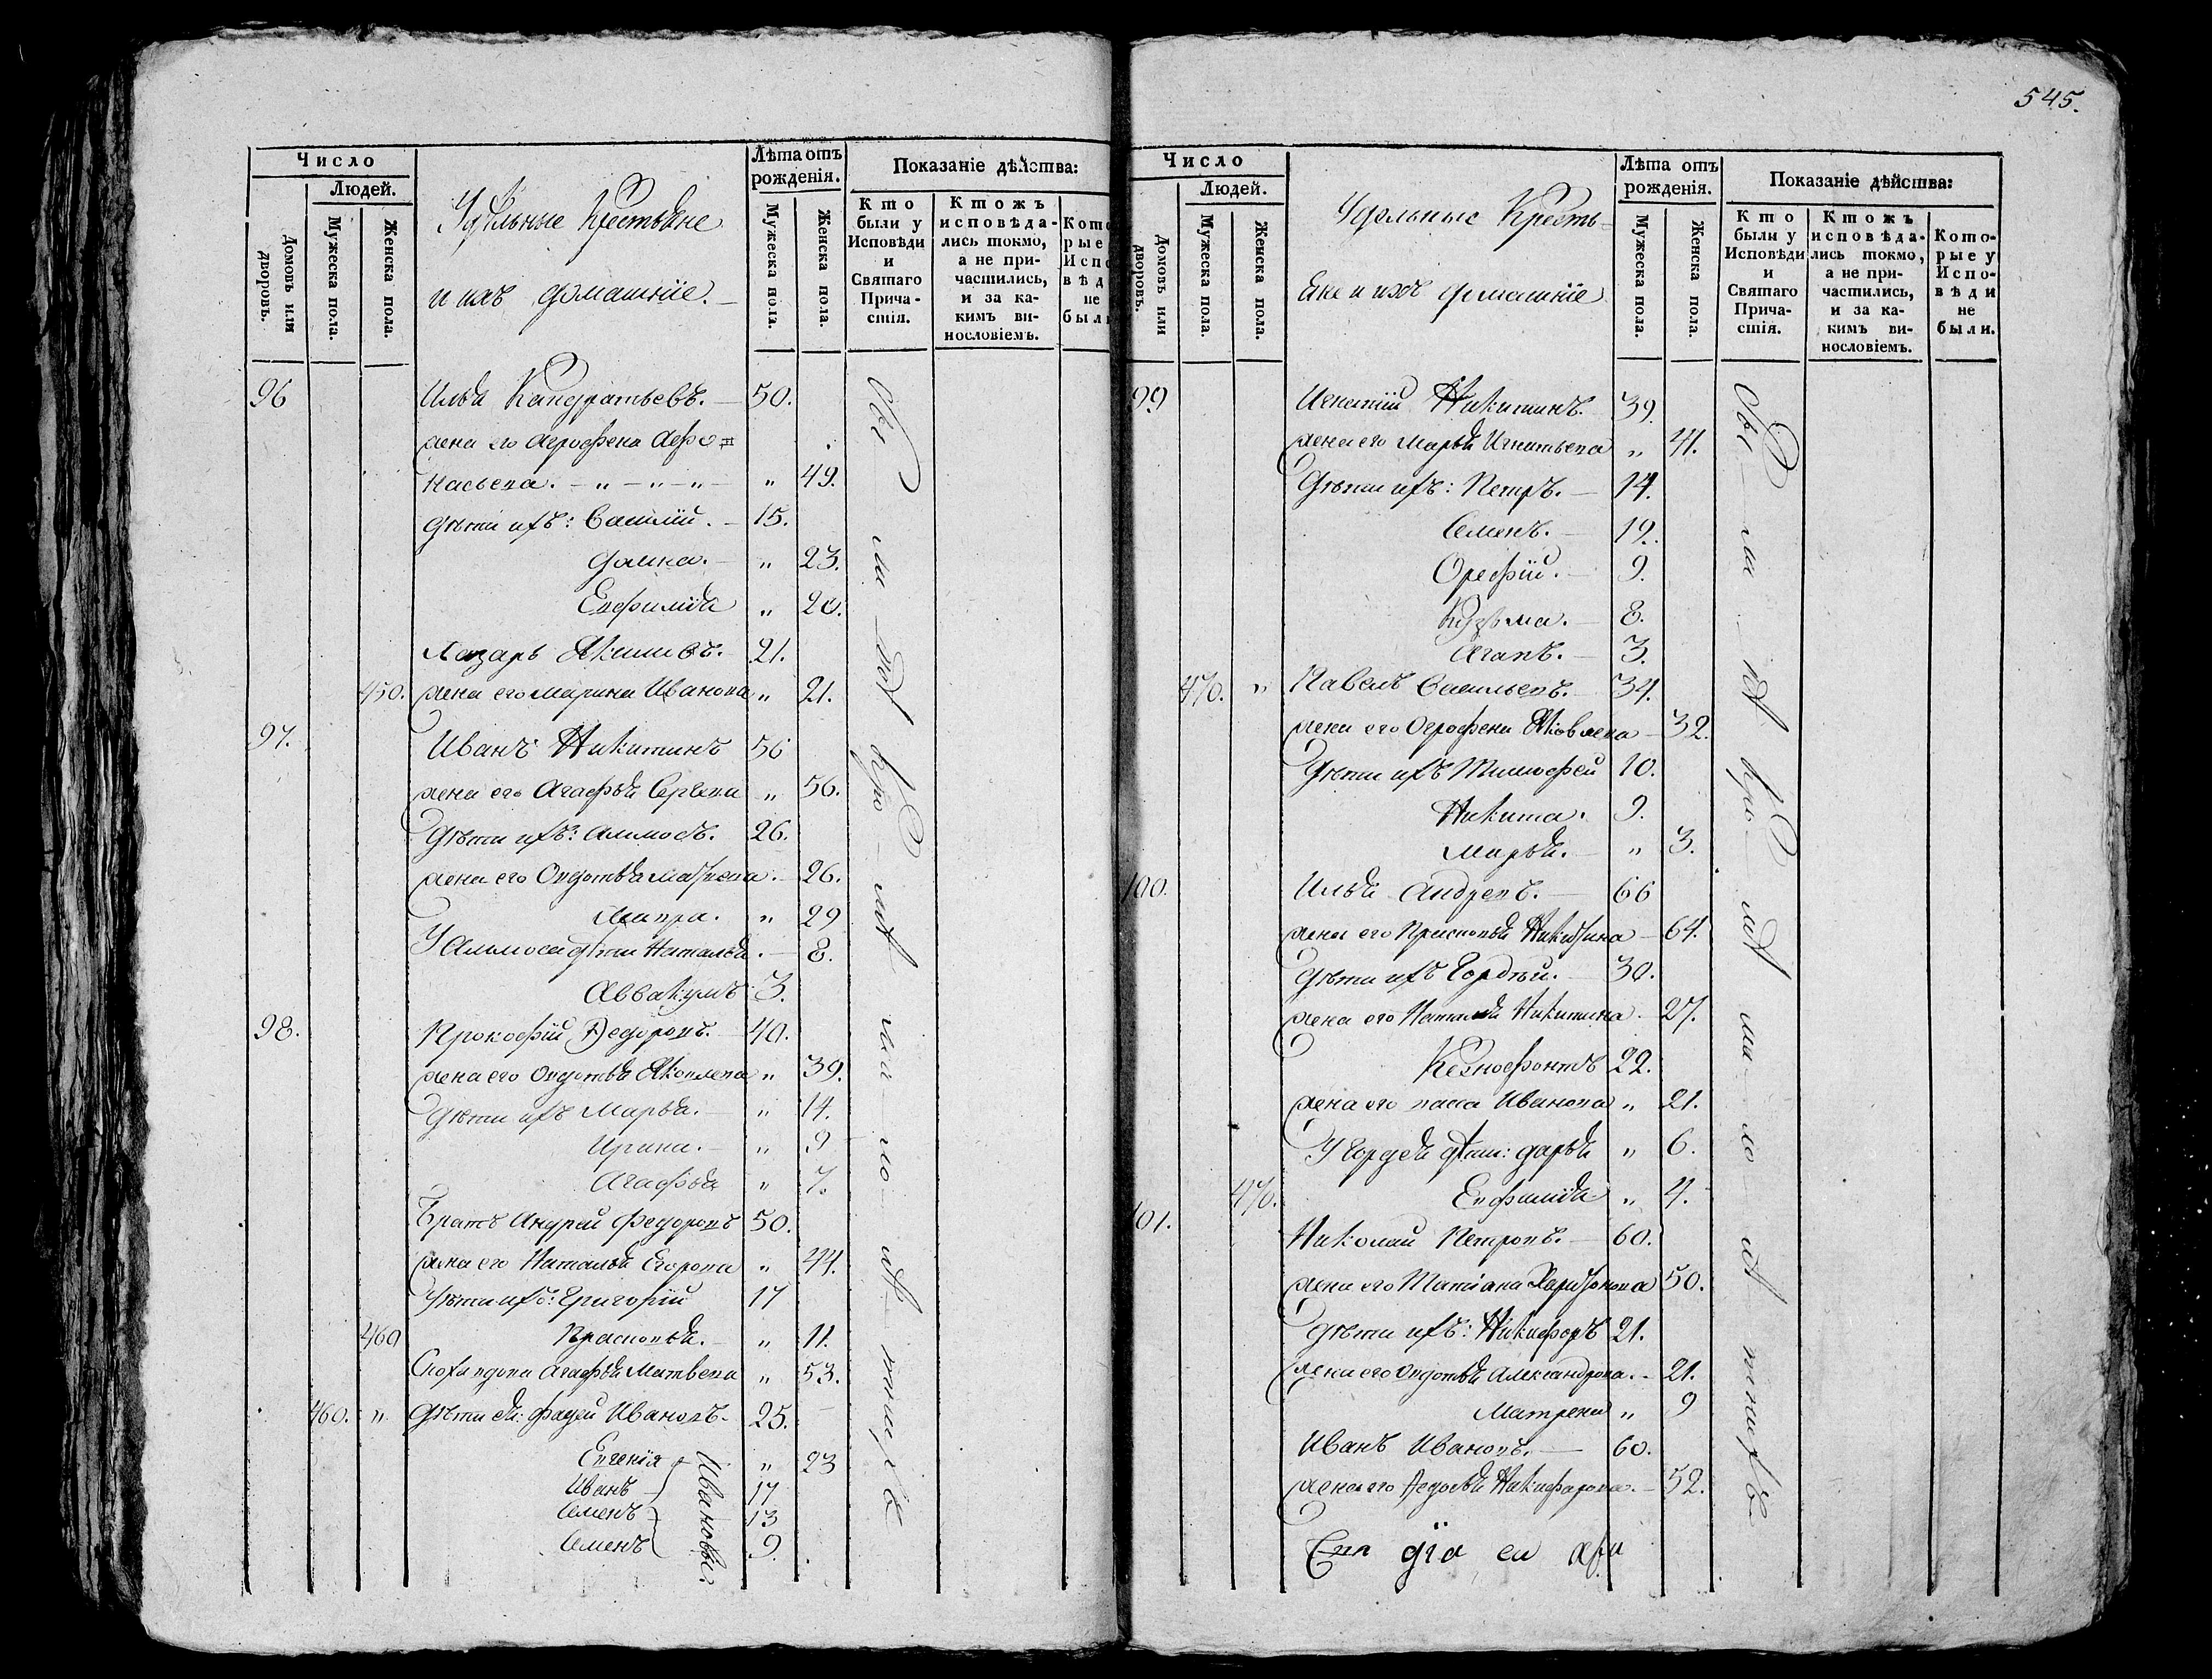 545.
Число
Людей.
Домовъ или дворовъ.
Мужеска пола.
Женска пола.
Удѣльные Крестьяне
и ихъ домашніе.
Лѣта отъ рожденія.
Мужеска пола.
Женска пола.
Показаніе дѣйства:
Кто были у Исповѣди и Святаго Причастія.
Ктожъ исповѣдались токмо, а не причастились, и за какимъ винословіемъ.
96 Илья Кандратьевъ. 50.
жена его Агрофена Афо=
насьева. " 49.
дѣти ихъ: Василій. 15.
Домна. " 23.
Евфимія " 20.
Лазарь Якимовъ. 21.
450. жена его Марина Иванова " 21.
97. Иванъ Никитинъ 56
жена его Агафья Сергѣева " 56.
дѣти ихъ: Аммосъ. 26.
жена его Овдотья Матвеева. 26.
Мавра. " 29
У Аммоса дѣти Наталья. 8.
Аввакумъ 3.
98. Прокофій Федоровъ. 40.
жена его Овдотья Яковлева " 39.
дѣти ихъ Марья. " 14.
Ирина. " 9
Агафья " 7.
Братъ Андрей Федоровъ 50.
жена его Наталья Егорова " 44.
дѣти ихъ: Григорій 17
460 Прасковья. " 11.
Сноха вдова Агафья Матвеева " 53.
460. " дѣти ея: Фадей Ивановъ. 25.
Евгенія " 23
Иванъ 17
Семенъ 13
Семенъ 9.
Ивановы.
Число
Людей.
Домовъ или дворовъ.
Мужеска пола.
Женска пола.
Удѣльные Кресть=
яне и ихъ домашніе
Лѣта отъ рожденія.
Мужеска пола.
Женска пола.
Показаніе дѣйства:
Кто были у Исповѣди и Святаго Причастія.
Ктожъ исповѣдались токмо, а не причастились, и за какимъ винословіемъ.
Которые у Исповѣди не были.
99 Игнатій Никитинъ. 39.
жена его Марья Игнатьева " 41.
Дѣти ихъ: Петръ. 14.
Семенъ. 19.
Орефій. 9.
Кузьма. 8.
Агапъ. 3.
470. " Павелъ Васильевъ. 34.
жена его Огрофена Яковлева 32.
Дѣти ихъ Тимофей 10.
Никита. 9.
Марья. " 3.
100. Илья Андреевъ. 66
жена его Прасковья Никитина 64.
дѣти ихъ Гордѣй. 30.
жена его Наталья Никитина. 27.
Ксенофонтъ 22.
жена его Иванова " 21.
У Гордея дѣти: Дарья " 6.
470. Евфимія " 4.
101. Николай Петровъ. 60.
жена его Татіана Харитонова 50.
дѣти ихъ: Никифоръ 21.
жена его Овдотья Александрова. 21.
Матрена " 9
Иванъ Ивановъ. 60.
жена его Федосья Никифорова. 52.